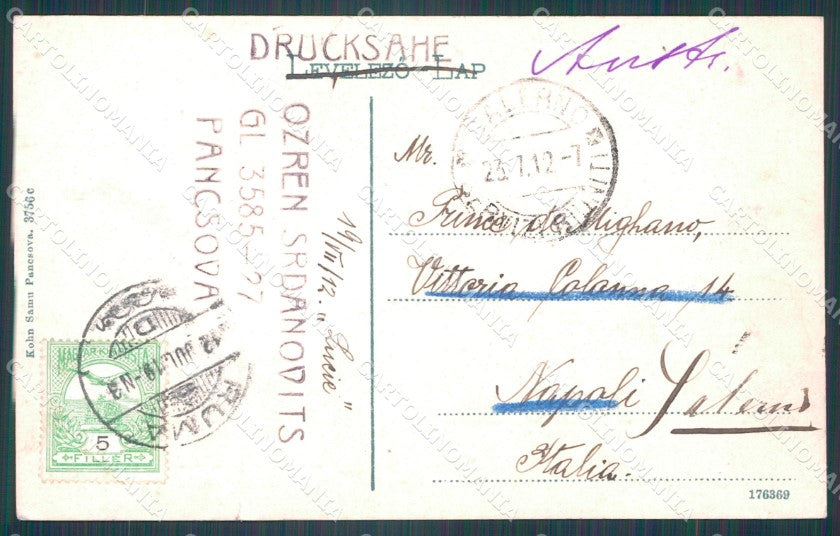 DRUCKSAHE
LEVELEZŐ-LAP
Austr.
OZREN SRDANOVITS
GL 3585-27
PANCSOVA
19/VII/12. „Lucie"
Kohn Samu Pancsova. 3756c
12 JUL. 19.-N3
RUMA
MAGYAR KIR
5
FILLÉR
23.7.12-7
Mr.
Prince de Mighano,
Vittoria Colanna 14
Napoli Salerno
Italia.
176369
CARTOLINOMANIA